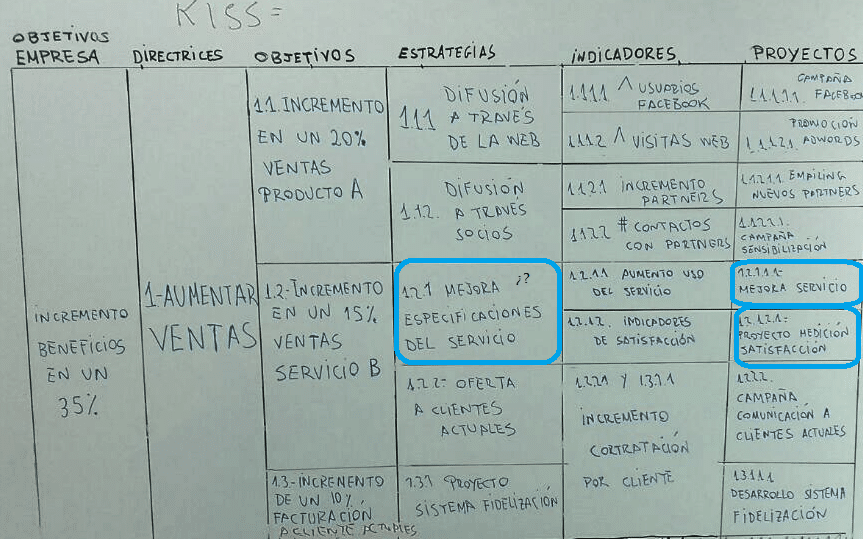 KISS=
OBJETIVOS
EMPRESA
DIRECTRICES
OBJETIVOS
ESTRATEGIAS
INDICADORES
PROYECTOS
INCREMENTO
BENEFICIOS
EN UN
35%
1-AUMENTAR
VENTAS
1.1.INCREMENTO
EN UN 20%
VENTAS
PRODUCTO A
1.1.1
DIFUSIÓN
A TRAVÉS
DE LA WEB
1.1.1.1 ^ USUARIOS
FACEBOOK
1.1.1.1.1. CAMPAÑA
FACEBOOK
1.1.1.2 ^ VISITAS WEB
1.1.1.2.1. PROMOCIÓN
ADWORDS
1.1.2.
DIFUSIÓN
A TRAVÉS
SOCIOS
1.1.2.1 INCREMENTO
PARTNERS
1.1.2.1.1. EMAILING
NUEVOS PARTNERS
1.1.2.2 # CONTACTOS
CON PARTNERS
1.1.2.2.1.
CAMPAÑA
SENSIBILIZACIÓN
1.2-INCREMENTO
EN UN 15%
VENTAS
SERVICIO B
1.2.1 MEJORA ¿?
ESPECIFICACIONES
DEL SERVICIO
1.2.1.1 AUMENTO USO
DEL SERVICIO
1.2.1.1.1-
MEJORA SERVICIO
1.2.1.2. INDICADORES
DE SATISFACCIÓN
1.2.1.2.1-
PROYECTO MEDICIÓN
SATISFACCIÓN
1.2.2- OFERTA
A CLIENTES
ACTUALES
1.2.2.1 Y 1.3.1.1
INCREMENTO
CONTRATACIÓN
POR CLIENTE
1.2.2.2.
CAMPAÑA
COMUNICACIÓN A
CLIENTES ACTUALES
1.3.-INCREMENTO
DE UN 10%
FACTURACIÓN
A CLIENTE ACTUALES
1.3.1 PROYECTO
SISTEMA FIDELIZACIÓN
1.3.1.1.1
DESARROLLO SISTEMA
FIDELIZACIÓN